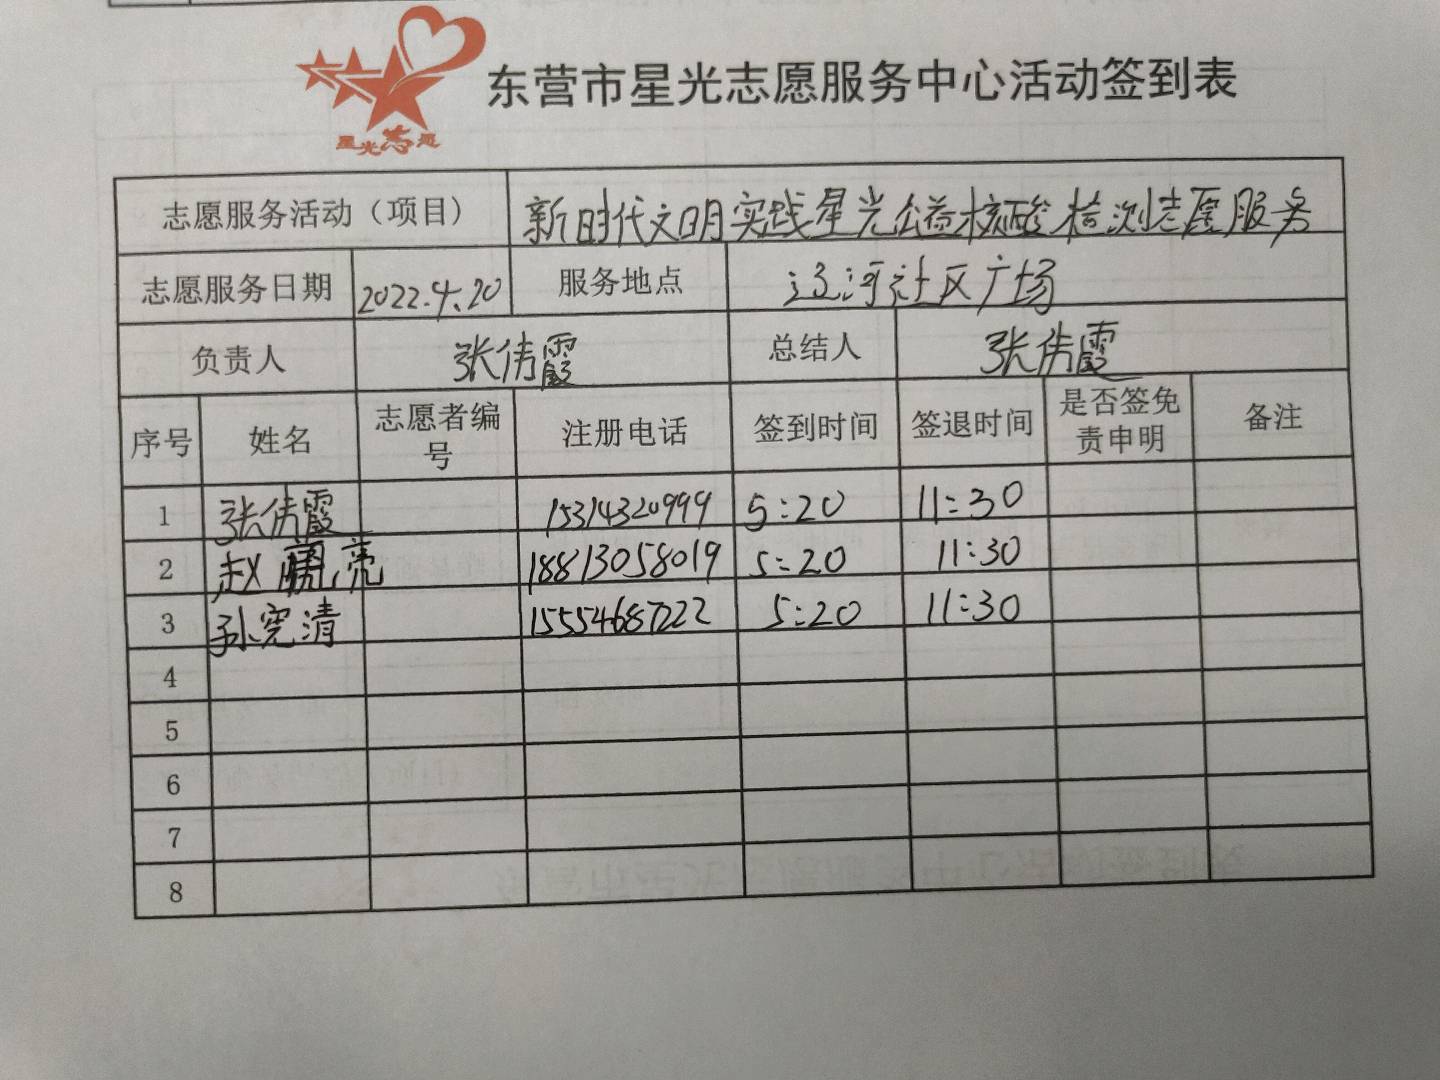 星光志愿
东营市星光志愿服务中心活动签到表
志愿服务活动（项目） 新时代文明实践星光公益核酸检测志愿服务
志愿服务日期 2022.4.20 服务地点 辽河社区广场
负责人 张伟霞 总结人 张伟霞
序号 姓名 志愿者编号 注册电话 签到时间 签退时间 是否签免责申明 备注
1 张伟霞 15314320999 5:20 11:30
2 赵 亮 18813058019 5:20 11:30
3 孙宪清 15554687222 5:20 11:30
4
5
6
7
8